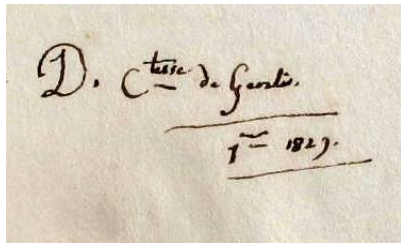 D. Ctesse de Genlis.
1829.